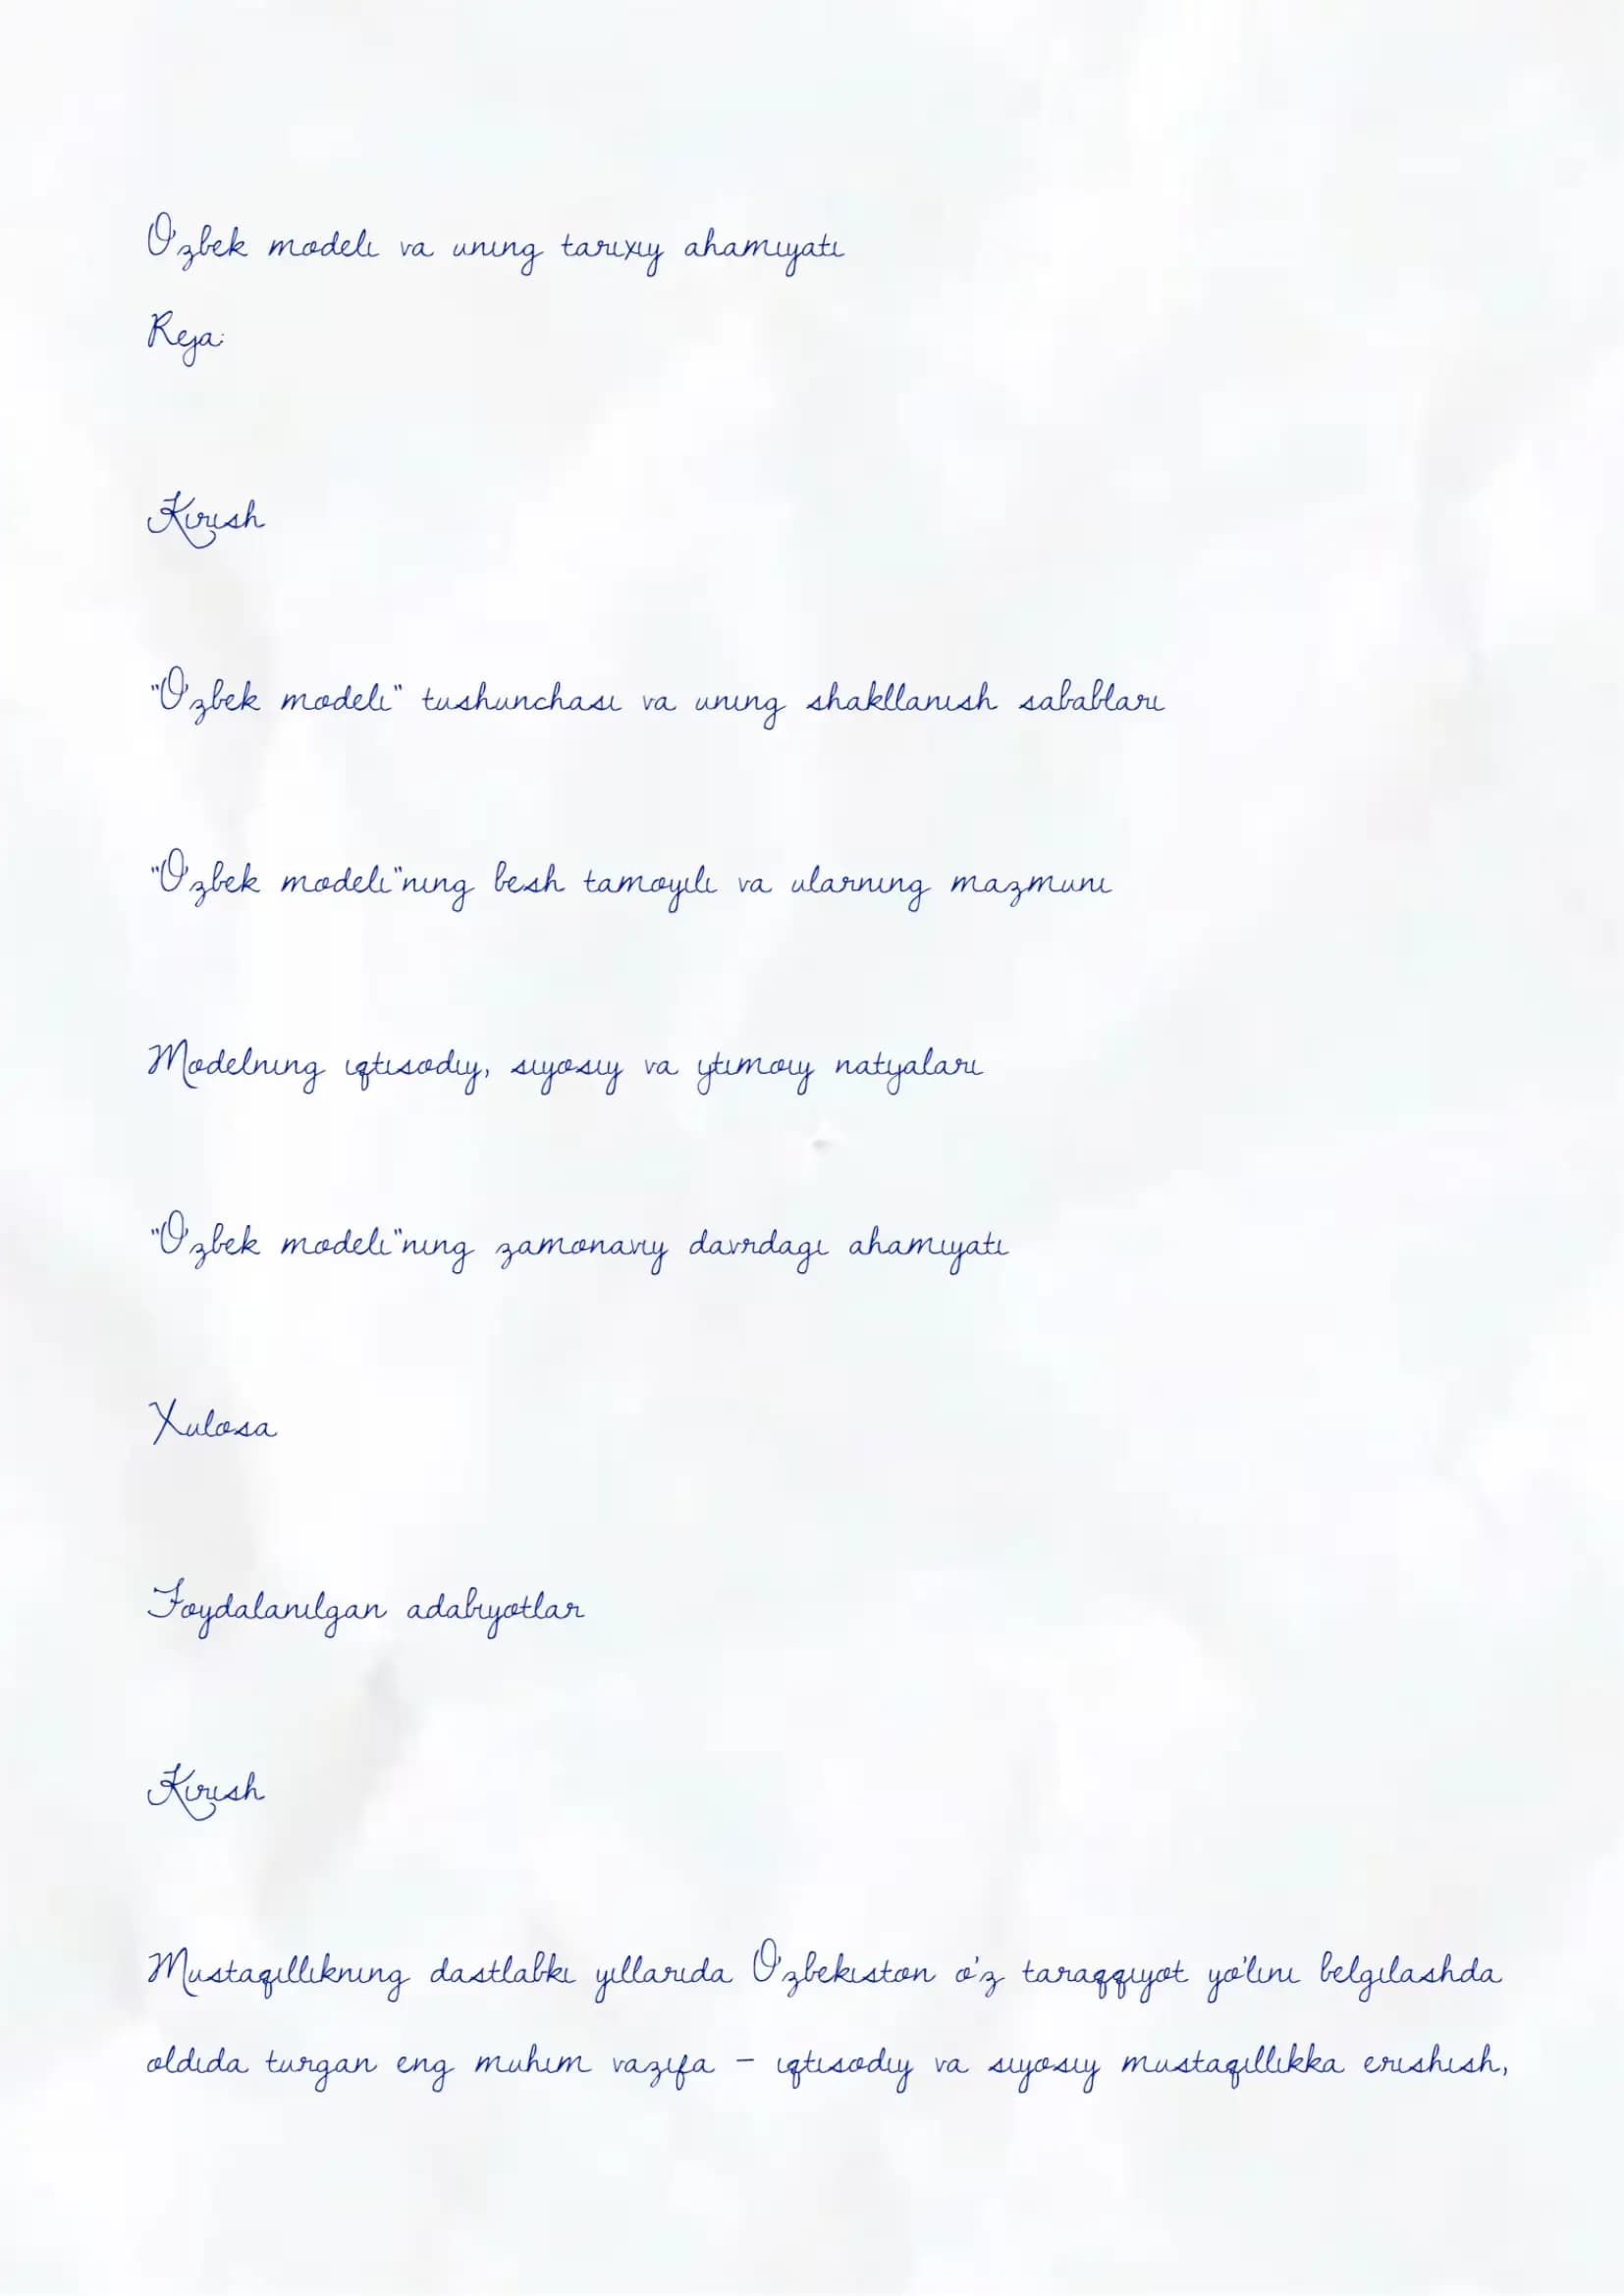 O'zbek modeli va uning tarixiy ahamiyati
Reja:
Kirish
"O'zbek modeli" tushunchasi va uning shakllanish sabablari
"O'zbek modeli"ning besh tamoyili va ularning mazmuni
Modelning iqtisodiy, siyosiy va ijtimoiy natijalari
"O'zbek modeli"ning zamonaviy davrdagi ahamiyati
Xulosa
Foydalanilgan adabiyotlar
Kirish
Mustaqillikning dastlabki yillarida O'zbekiston o'z taraqqiyot yo'lini belgilashda
oldida turgan eng muhim vazifa – iqtisodiy va siyosiy mustaqillikka erishish,